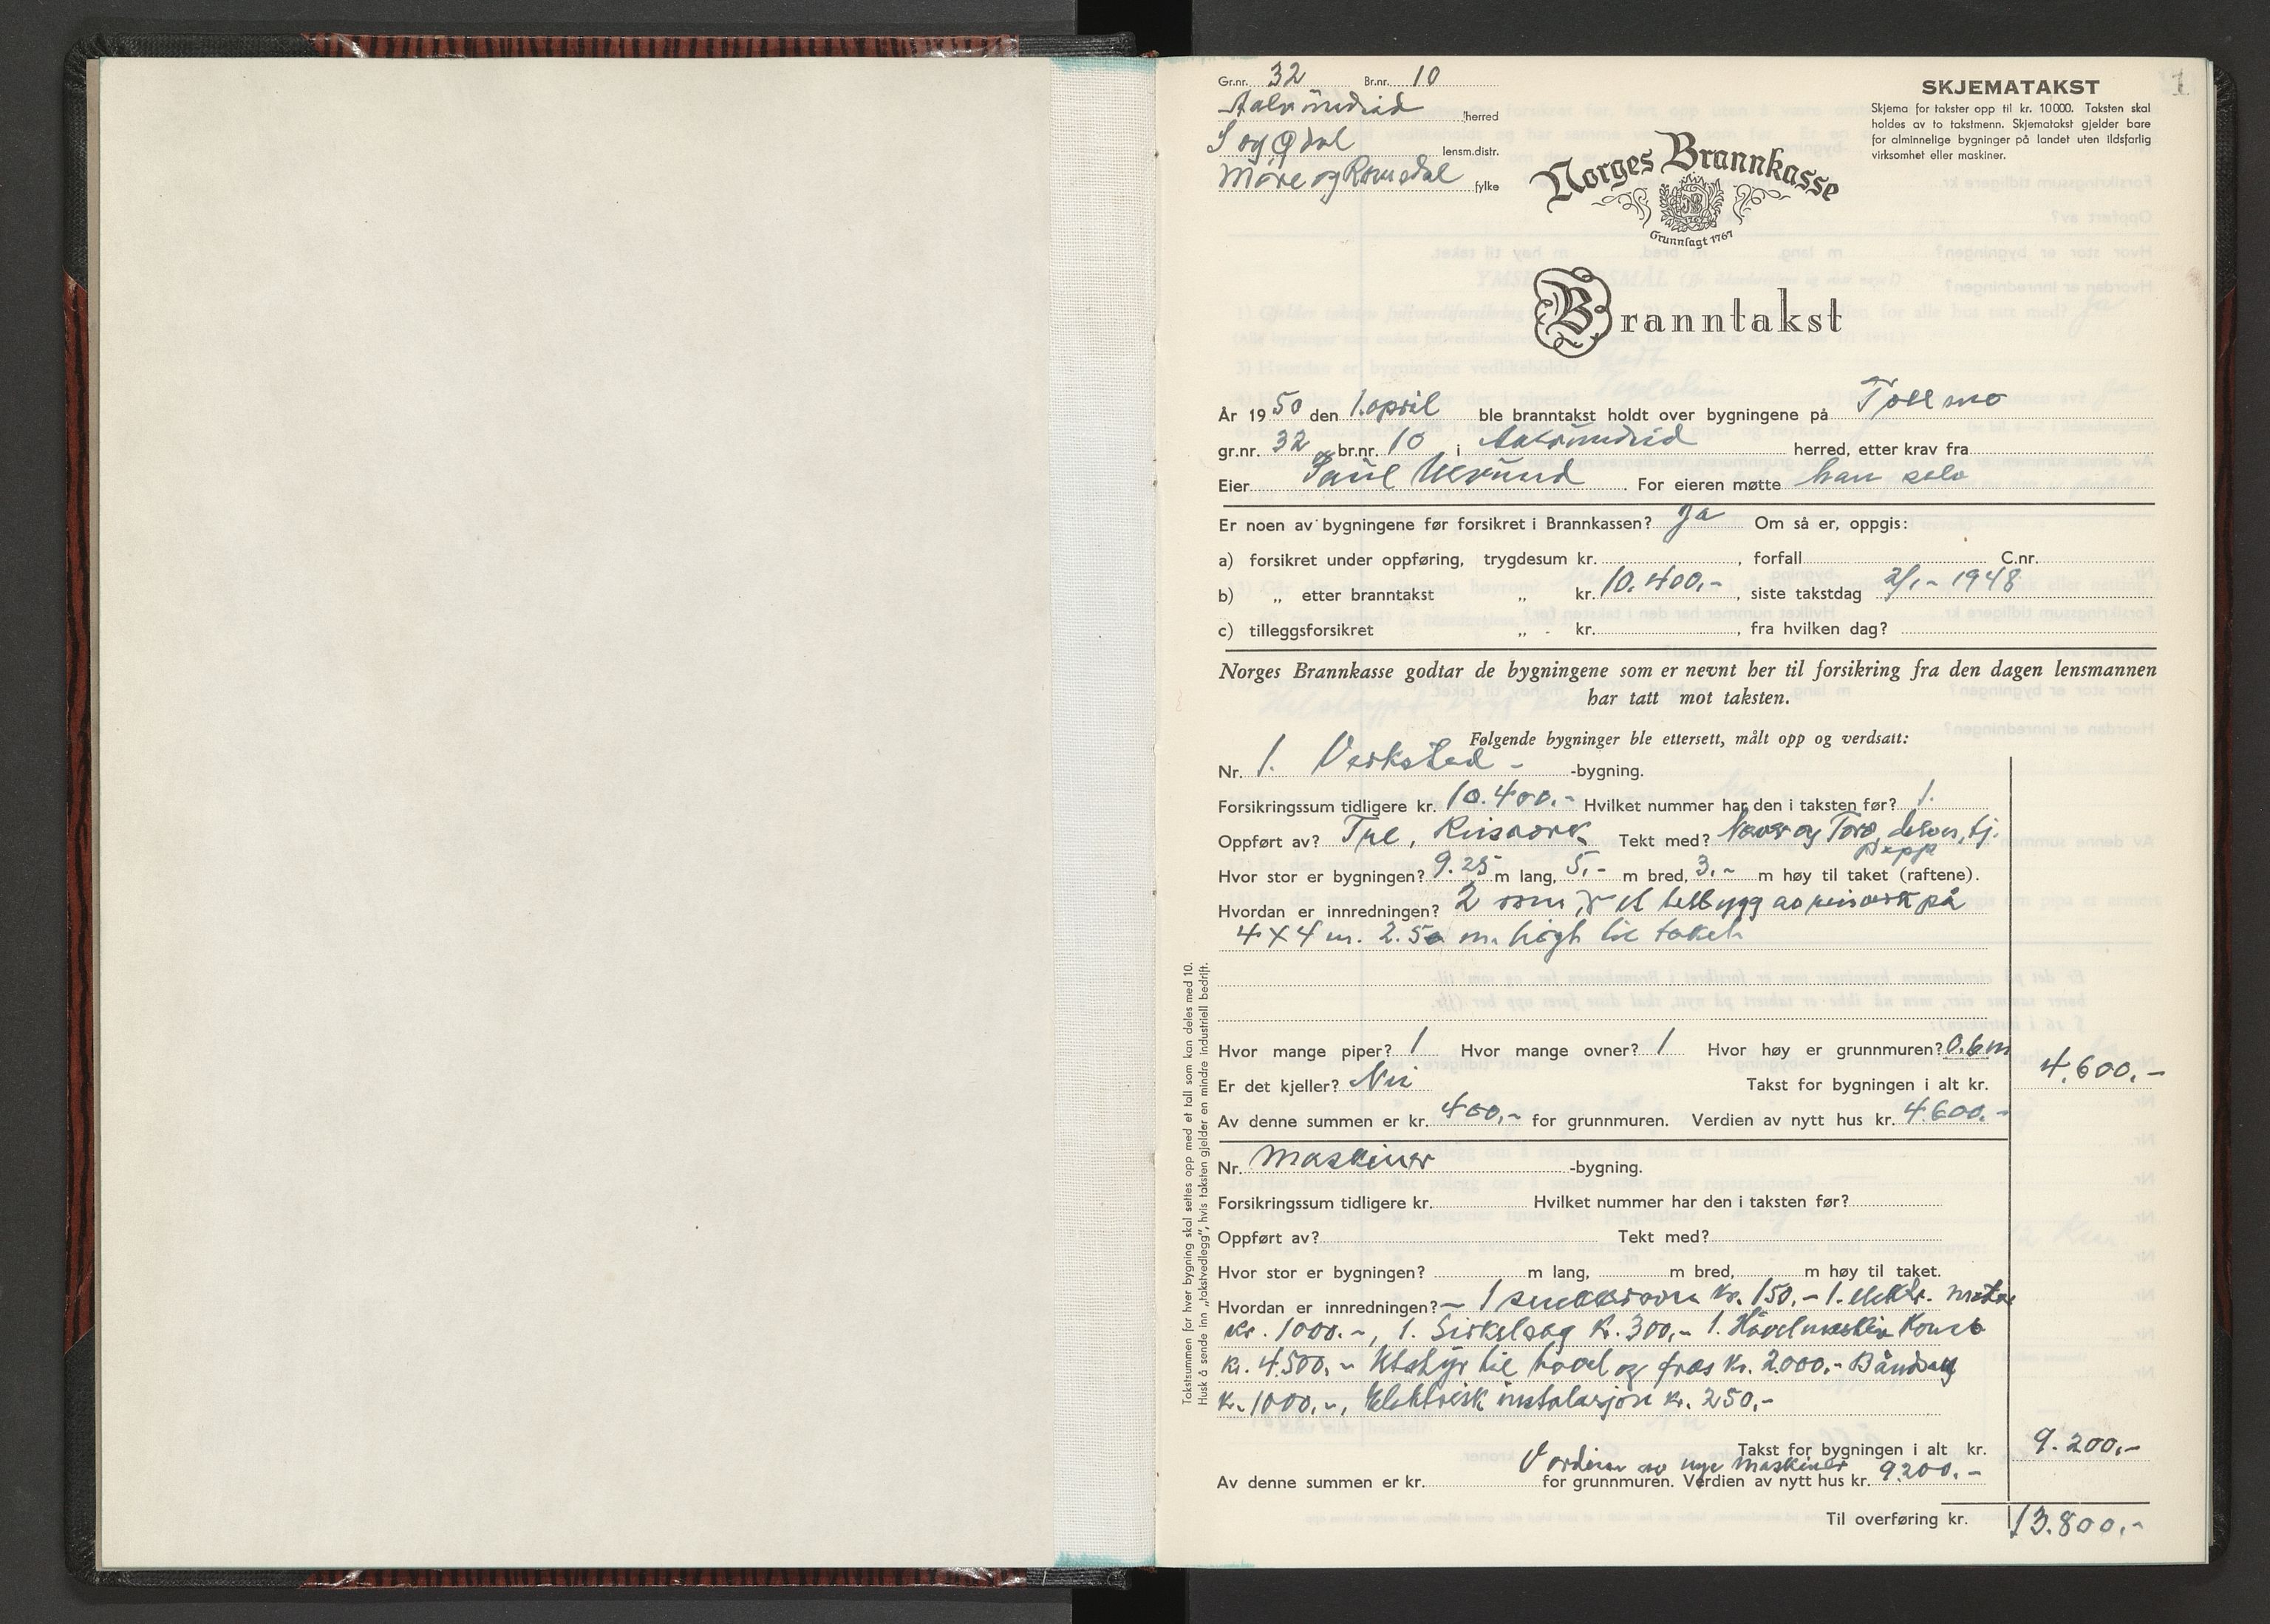 1
Gr.nr. 32 Br.nr. 10
herred
S og Ø dal lensm.distr.
Møre og Romsdal fylke
SKJEMATAKST
Skjema for takster opp til kr. 10 000. Taksten skal
holdes av to takstmenn. Skjematakst gjelder bare
for alminnelige bygninger på landet uten ildsfarlig
virksomhet eller maskiner.
Norges Brannkasse
NB
Grunnlagt 1767
Branntakst
År 1950 den 1. april ble branntakst holdt over bygningene på
gr.nr. 32 br.nr. 10 i herred, etter krav fra
Eier Paul For eieren møtte han selv
Er noen av bygningene før forsikret i Brannkassen? Ja Om så er, oppgis:
a) forsikret under oppføring, trygdesum kr. , forfall C.nr.
b) „ etter branntakst „ kr. 10.400,- , siste takstdag 2/1 - 1948
c) tilleggsforsikret „ kr. , fra hvilken dag?
Norges Brannkasse godtar de bygningene som er nevnt her til forsikring fra den dagen lensmannen
har tatt mot taksten.
Følgende bygninger ble ettersett, målt opp og verdsatt:
Nr. 1. Verksted - -bygning.
Forsikringssum tidligere kr. 10.400.- Hvilket nummer har den i taksten før? 1.
Oppført av? Tre, Reisverk Tekt med? Never og Torv, delvis tj.
papp
Hvor stor er bygningen? 9.25 m lang, 5,- m bred, 3,- m høy til taket (raftene).
Hvordan er innredningen? 2 rom, et tilbygg av reisverk på
4 x 4 m. 2.50 m. høgt til taket
Hvor mange piper? 1 Hvor mange ovner? 1 Hvor høy er grunnmuren? 0.6 m
Er det kjeller? Nei Takst for bygningen i alt kr. 4.600,-
Av denne summen er kr. 400,- for grunnmuren. Verdien av nytt hus kr. 4.600.-
Nr. Maskiner -bygning.
Forsikringssum tidligere kr. Hvilket nummer har den i taksten før?
Oppført av? Tekt med?
Hvor stor er bygningen? m lang, m bred, m høy til taket.
Hvordan er innredningen? - 1 kr. 150,- 1. elektr. motor
kr. 1000.-, 1. Sirkelsag kr. 300,- 1. Høvelmaskin Komb
kr. 4.500,- Utstyr til høvel og fres kr. 2.000.- Båndsag
kr. 1000,-, Elektrisk instalasjon kr. 250,-
Takst for bygningen i alt kr. 9.200,-
Verdien av nye maskiner
Av denne summen er kr. for grunnmuren. Verdien av nytt hus kr. 9.200.-
Til overføring kr. 13.800,-
Takstsummen for hver bygning skal settes opp med et tall som kan deles med 10.
Husk å sende inn „takstvedlegg", hvis taksten gjelder en mindre industriell bedrift.